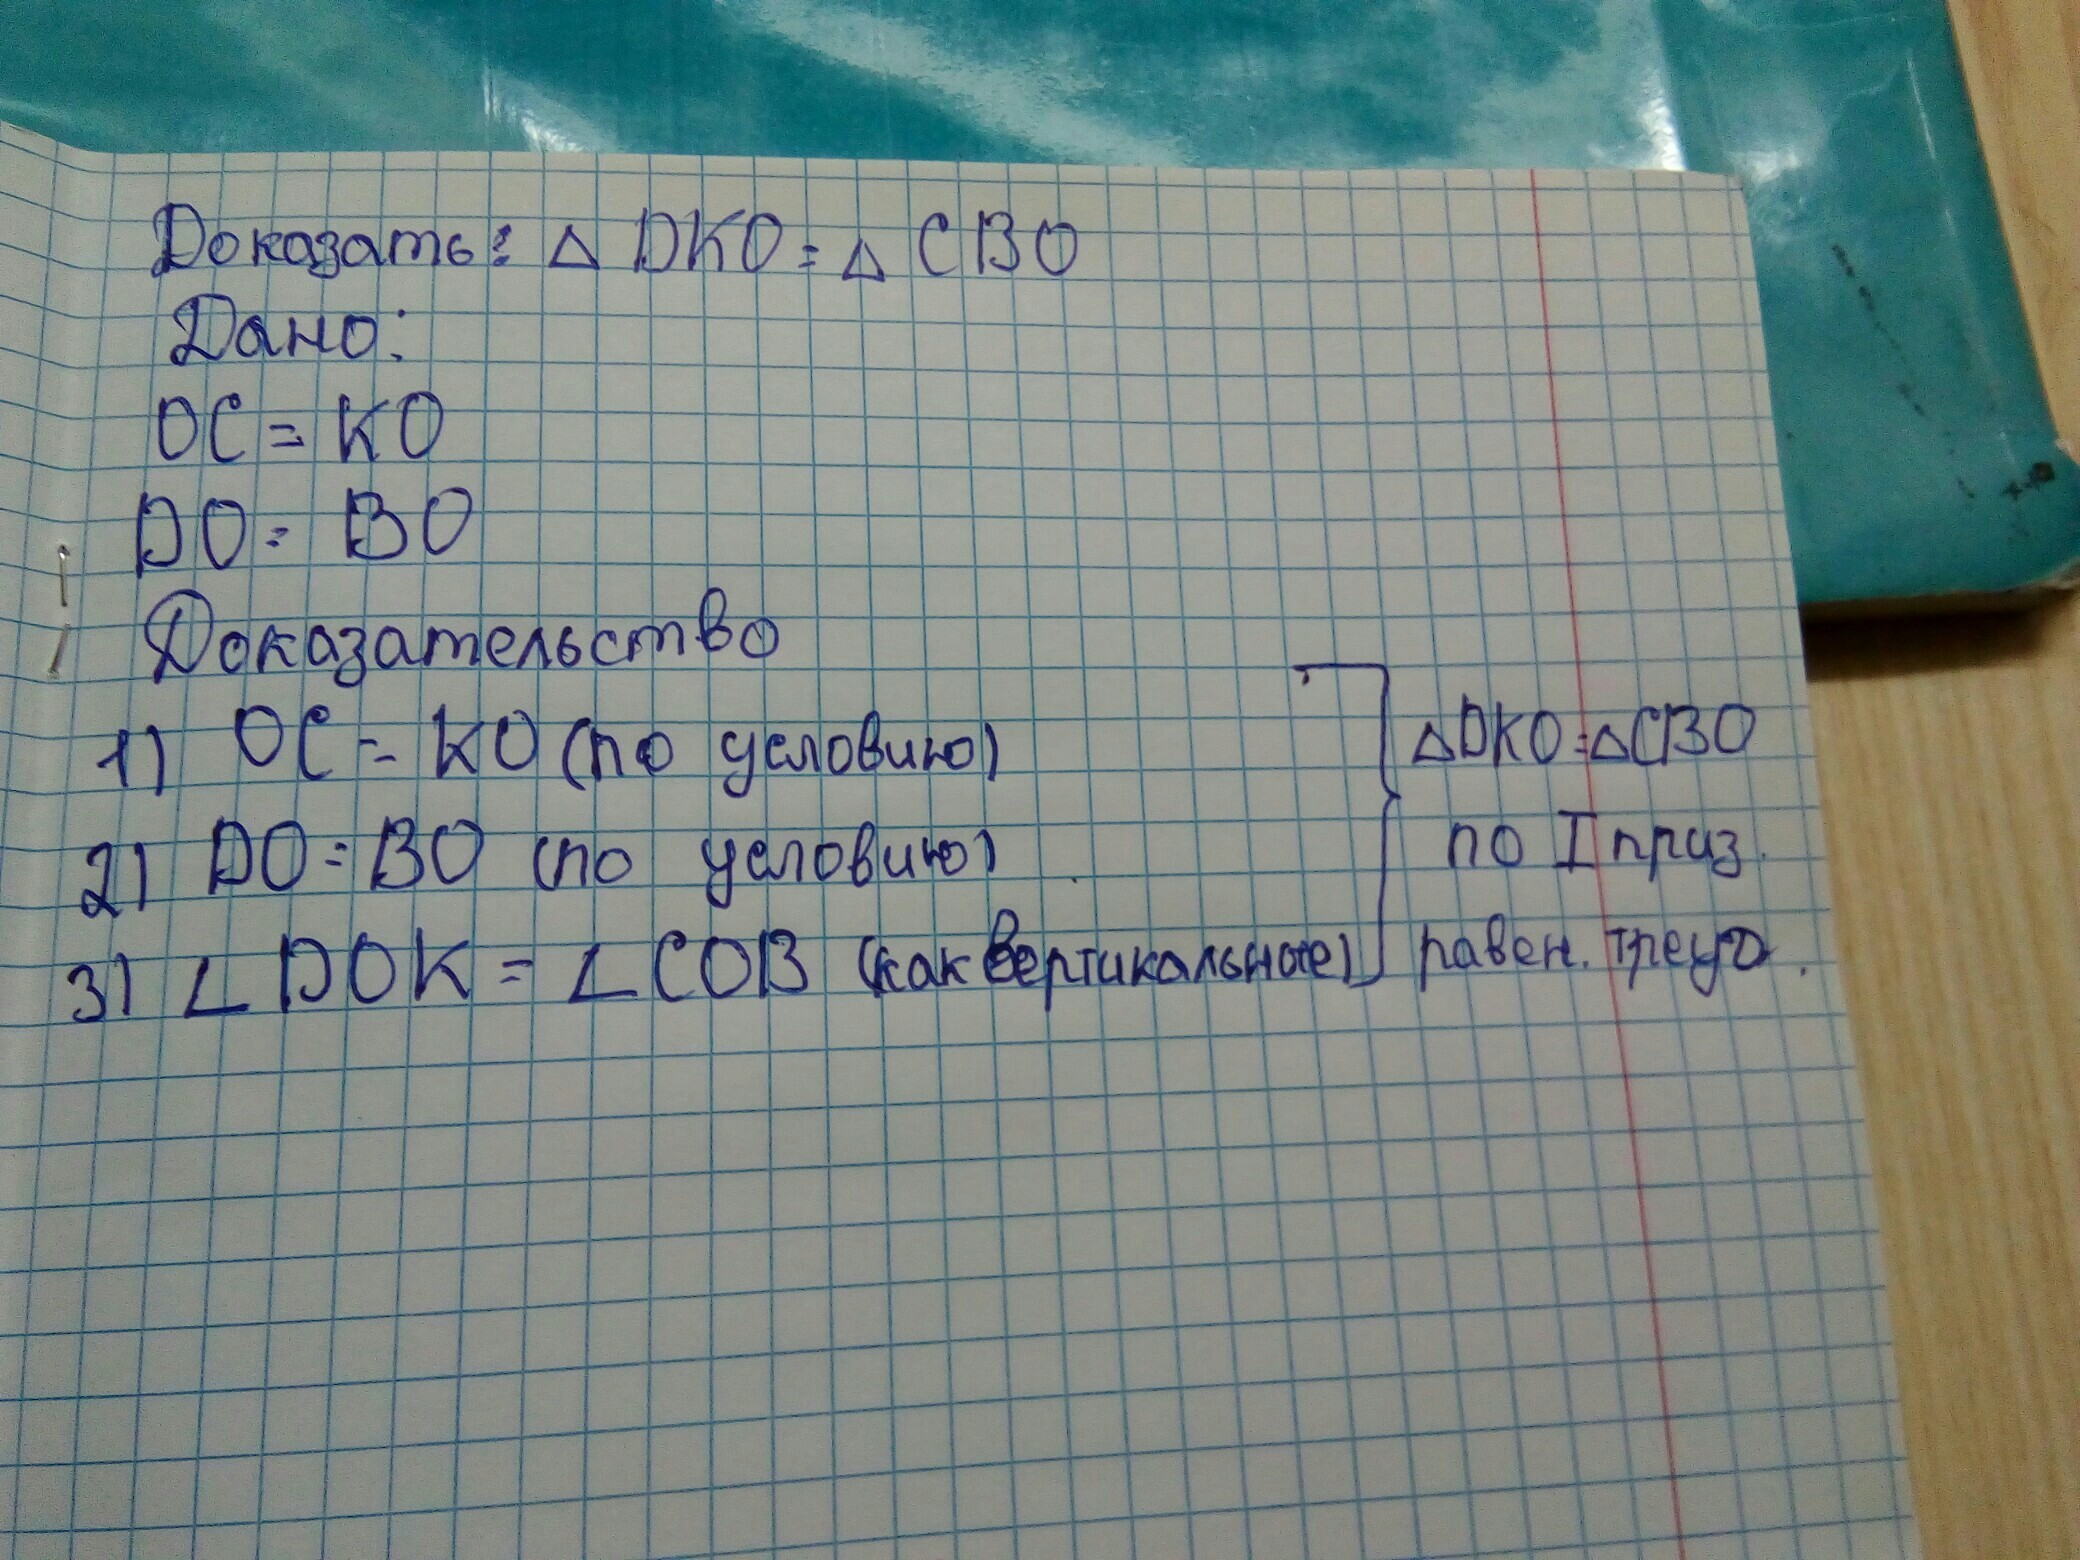 Доказать: △ DKO = △ CBO
Дано:
OC = KO
DO = BO
Доказательство
1) OC = KO (по условию)
2) DO = BO (по условию)
3) ∠ DOK = ∠ COB (как вертикальные)
△DKO = △CBO
по I приз.
равен. треуг.